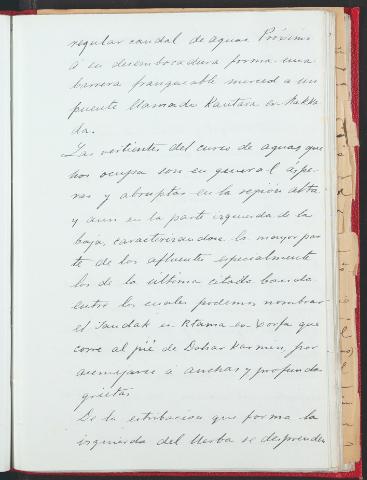 regular caudal de aguas Próximo
á su desembocadura forma una
barrera franqueable merced a un
puente llamado Kantara en Hakka
da.
Las vertientes del curso de aguas que
nos ocupa son en general áspe
ras y abruptas en la región alta
y aun en la parte izquierda de la
baja, caracterizandose la mayor par
te de los afluentes especialmente
los de la última citada banda
entre los cuales podemos nombrar
el Jandak en Rtama en Xorfa que
corre al pié de Dahar Karmin, por
asemejarse á anchas y profundas
grietas
De la estribacion que forma la
izquierda del Uerba se desprenden